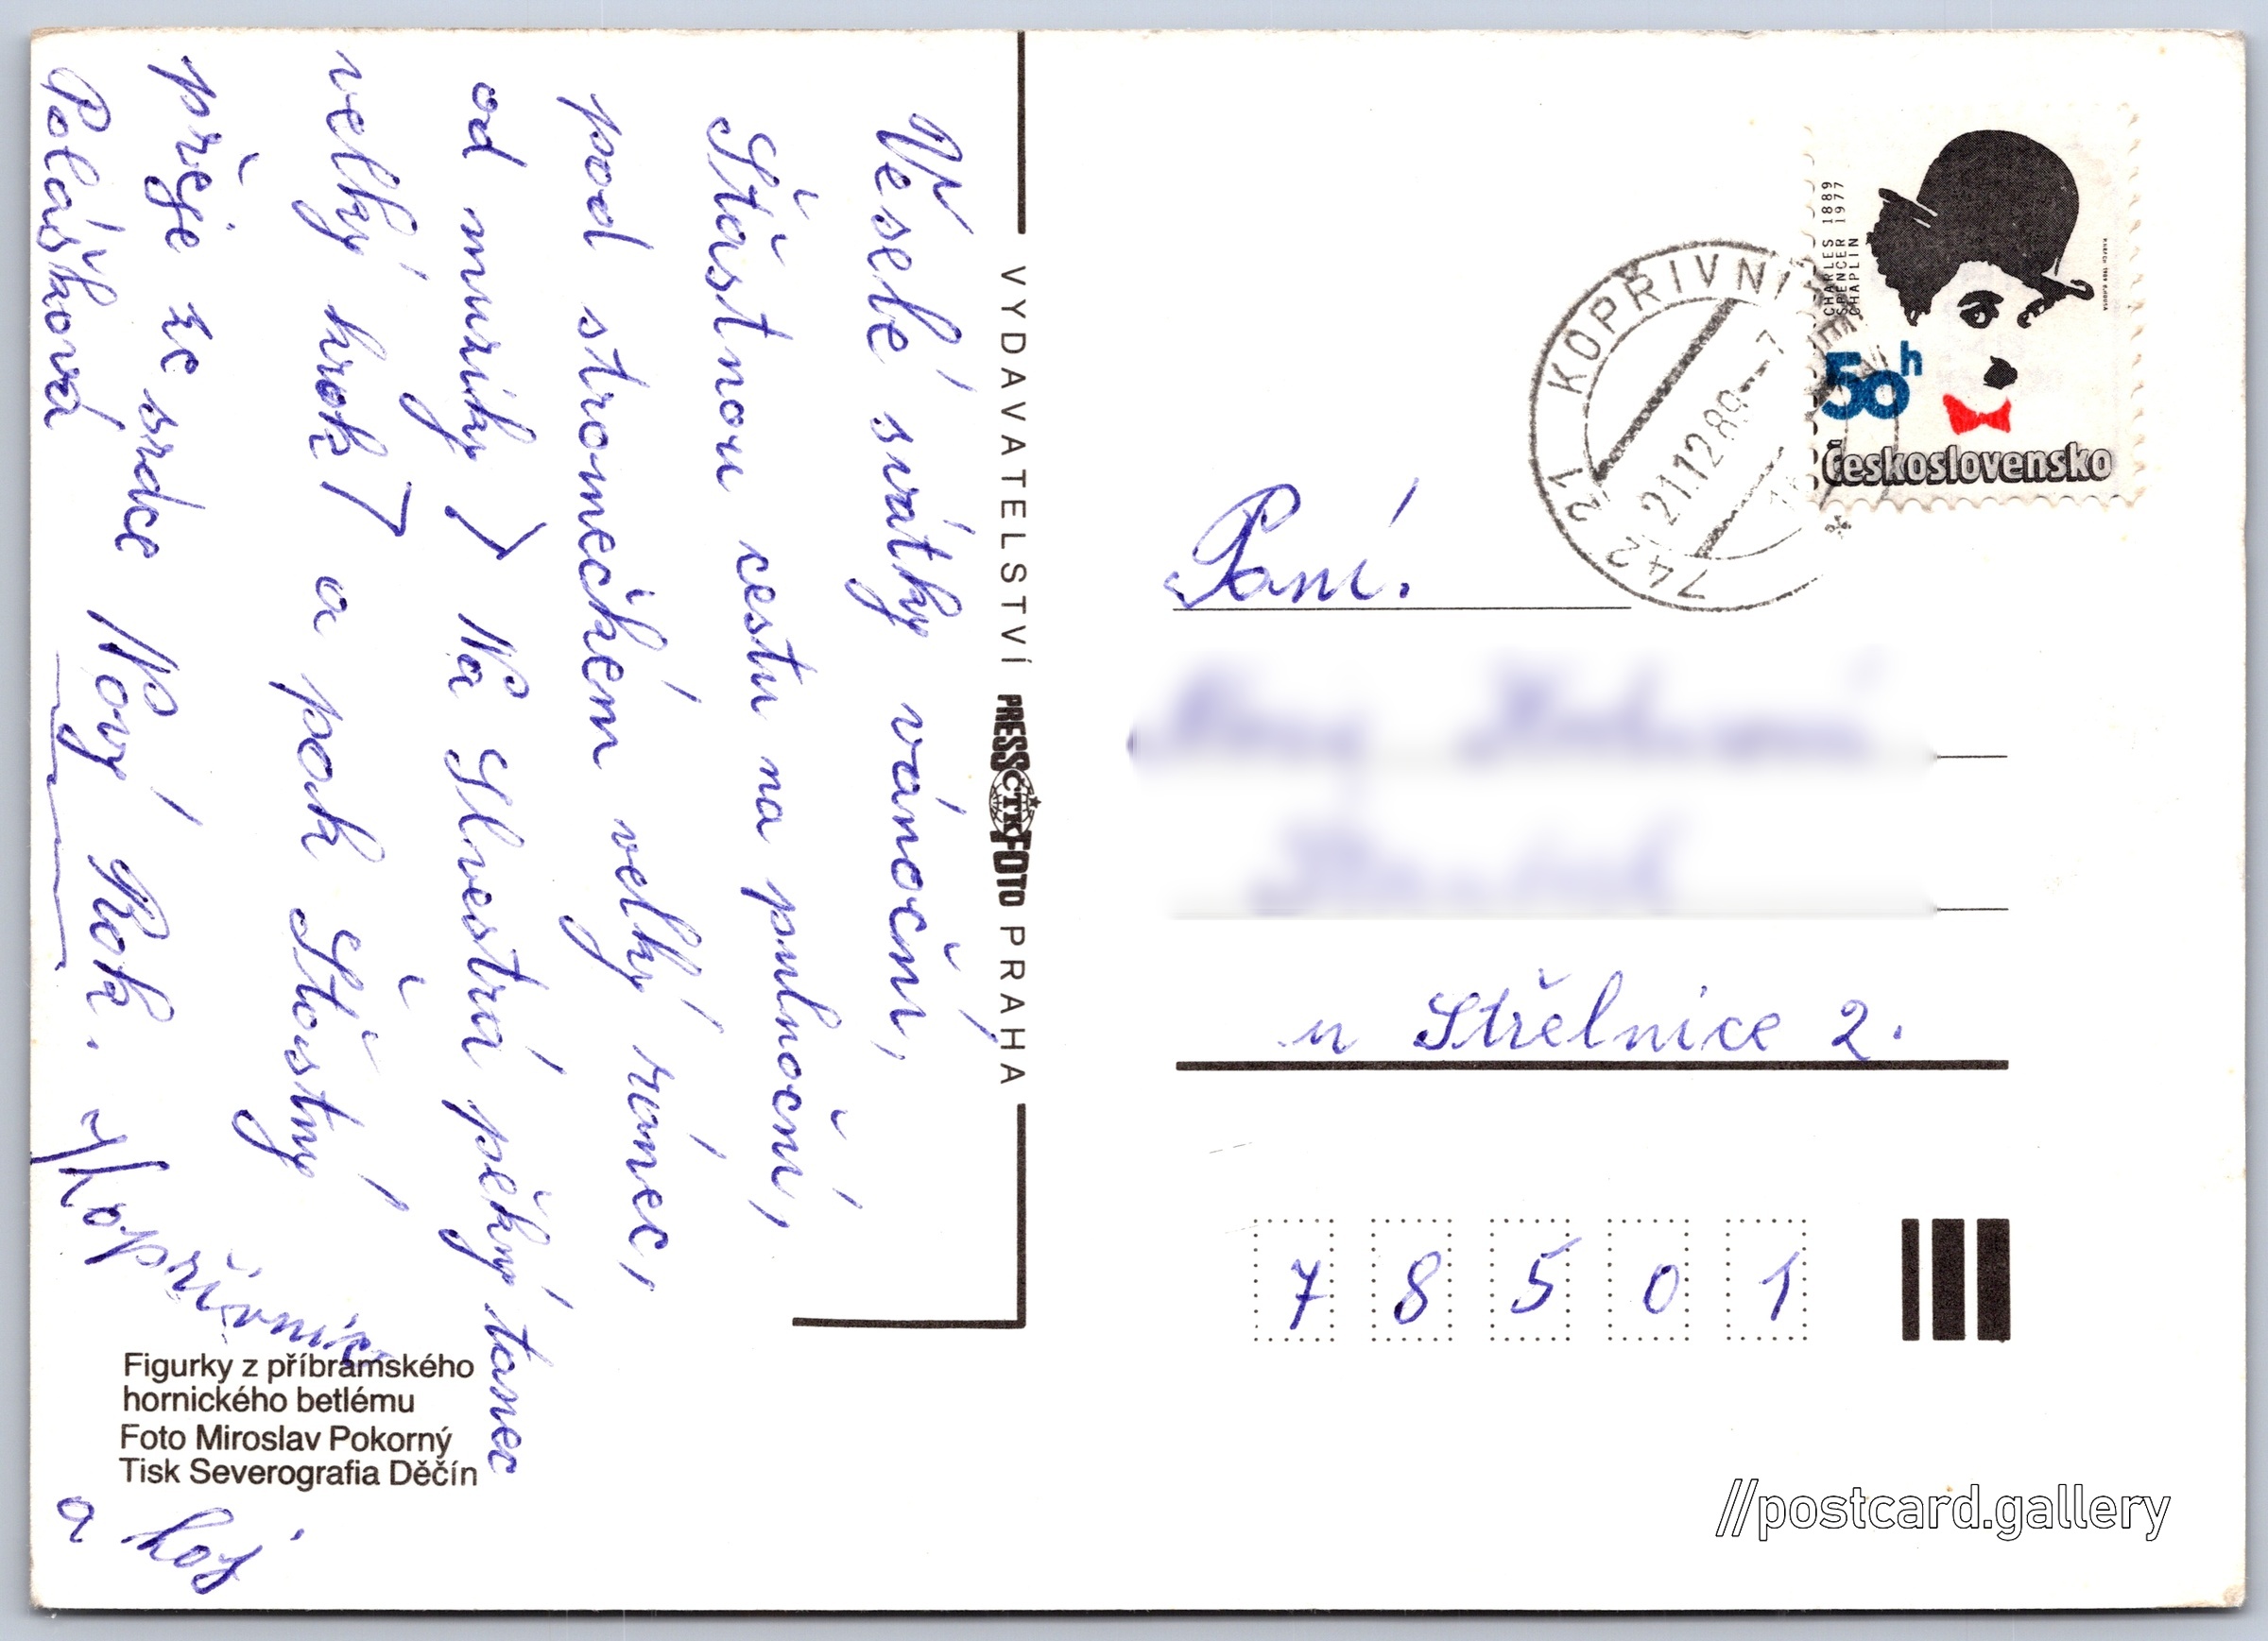 Veselé svátky vánoční,
Šťastnou cestu na pulnoční,
pod stromečkem velký ranec,
od muziky Na Sylvestra pěkný tanec
velký krok a pak Šťastný
přeje ze srdce Nový Rok.
Polášková
Kopřivnice
a
VYDAVATELSTVÍ PRESSFOTO PRAHA
ČTK
Figurky z příbramského
hornického betlému
Foto Miroslav Pokorný
Tisk Severografia Děčín
CHARLES 1889
SPENCER 1977
CHAPLIN
50h
Československo
742 21 KOPŘIVNI
21.12.89--7
Paní.
u Střelnice 2.
7 8 5 0 1
//postcard.gallery